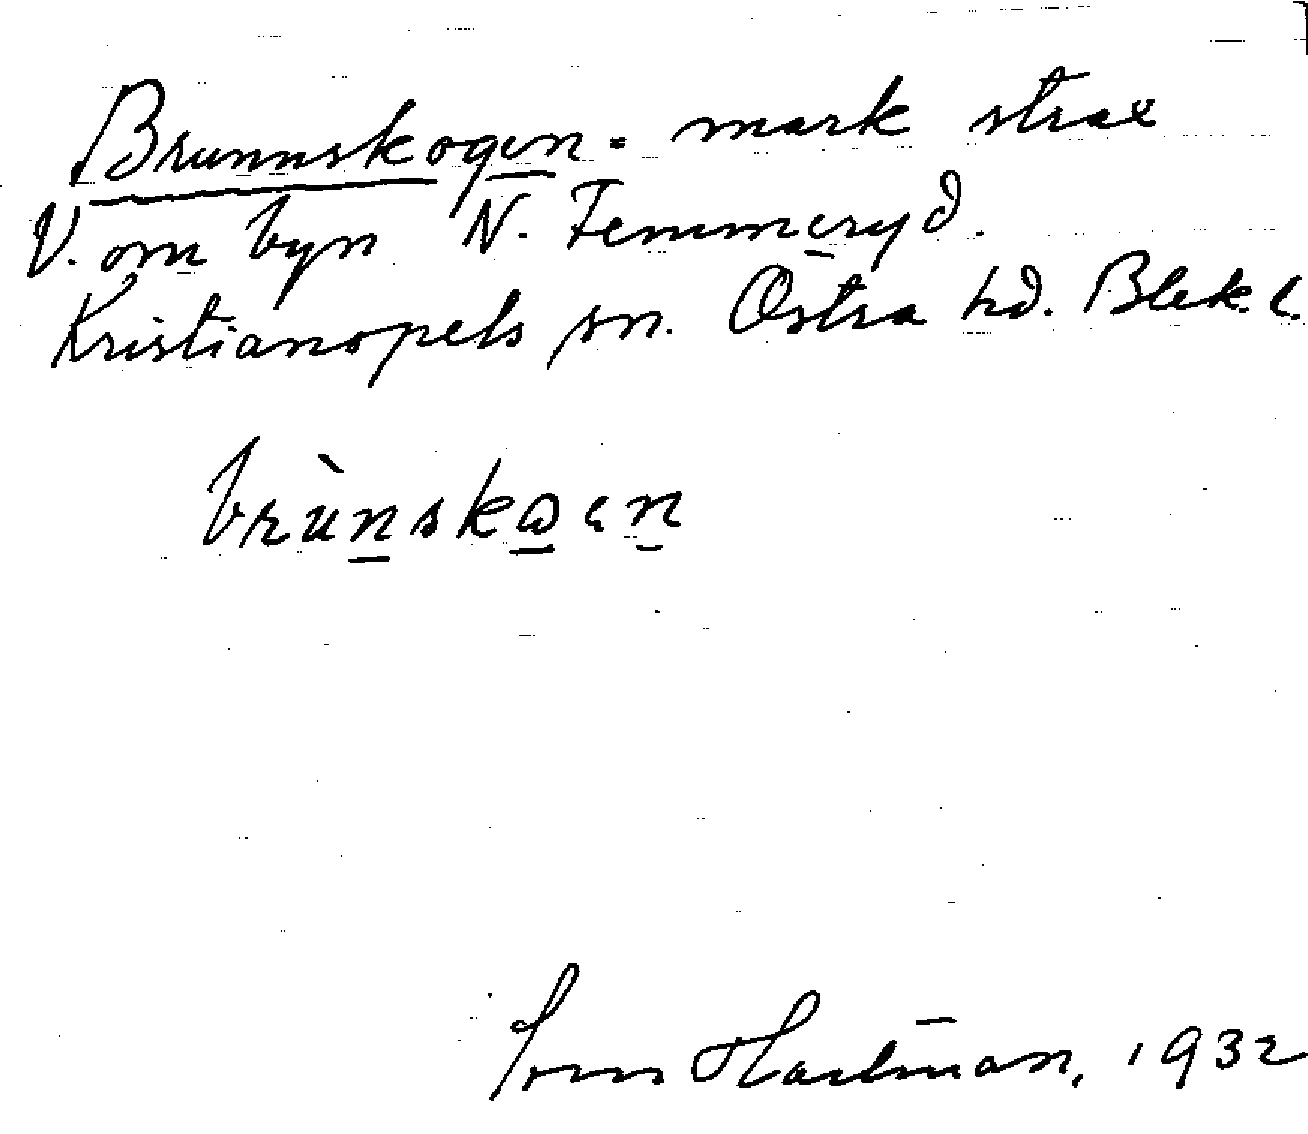 Brunnskogen - mark strax
V. om byn N. Femmeryd.
Kristianopels sn. Östra hd. Blek. l.
brùnskøen
Hartman, 1932